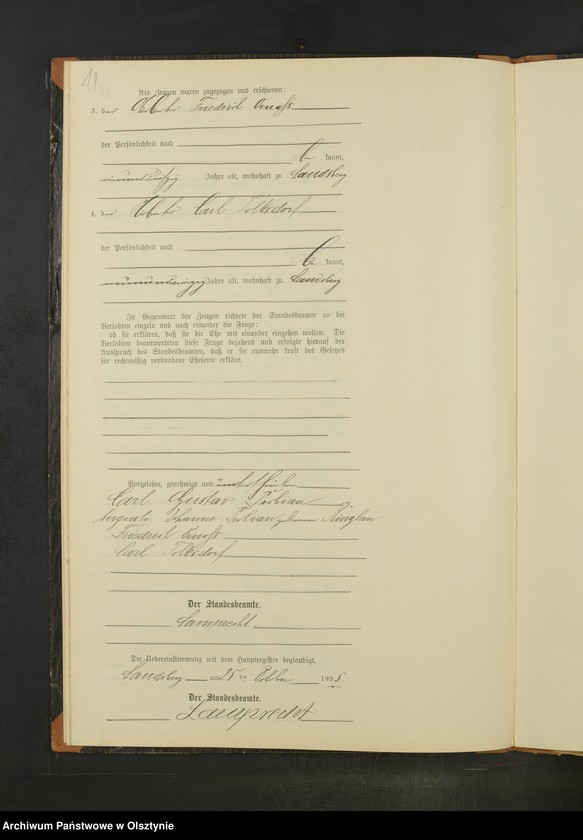 19
Als Zeugen waren zugezogen und erschienen:
3. der Friedrich
der Persönlichkeit nach
kannt,
Jahre alt, wohnhaft zu Landsberg
4. der Carl Tolksdorf
der Persönlichkeit nach
kannt,
Jahre alt, wohnhaft zu Landsberg
In Gegenwart der Zeugen richtete der Standesbeamte an die
Verlobten einzeln und nach einander die Frage:
ob sie erklären, daß sie die Ehe mit einander eingehen wollen. Die
Verlobten beantworteten diese Frage bejahend und erfolgte hierauf der
Ausspruch des Standesbeamten, daß er sie nunmehr kraft des Gesetzes
für rechtmäßig verbundene Eheleute erkläre.
Vorgelesen, genehmigt und unterschrieben
Carl Gustav
Auguste Johanne geborene
Friedrich
Carl Tolksdorf
Der Standesbeamte.
Lamprecht.
Die Uebereinstimmung mit dem Hauptregister beglaubigt.
Landsberg am 25 ten October 1895.
Der Standesbeamte.
Lamprecht
Archiwum Państwowe w Olsztynie